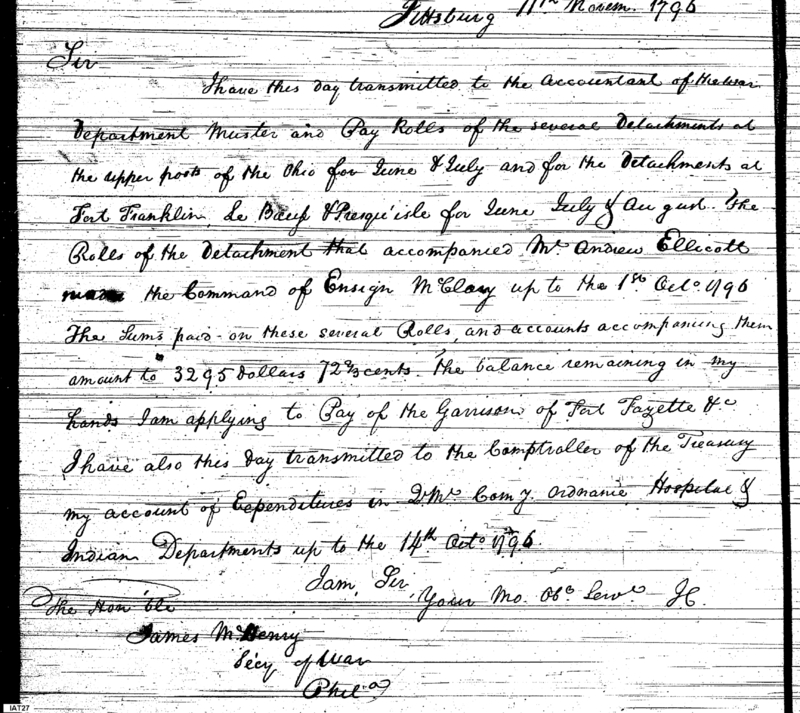 Pittsburg 11th Novem. 1796
Sir
I have this day transmitted to the Accountant of the War
Department Muster and Pay Rolls of the several Detachments at
the upper posts of the Ohio for June & July and for the Detachments at
Fort Franklin, Le Bœuf & Presqu'isle for June July & August. The
Rolls of the Detachment that accompanied Mr. Andrew Ellicott
the Command of Ensign McClary up to the 1st Octo 1796
The Sums paid on these several Rolls, and accounts accompanying them
amount to 3295 dollars 72 2/3 cents. The balance remaining in my
hands I am applying to Pay of the Garrison of Fort Fayette &c
I have also this day transmitted to the Comptroller of the Treasury
my account of Expenditures in Q.Mr. Comy. Ordnance, Hospital &
Indian Departments up to the 14th Octo. 1796
I am, Sir
Your Mo. Ob. Serv.
The Hon'ble
James McHenry
Secy of War
Phila
IAT27